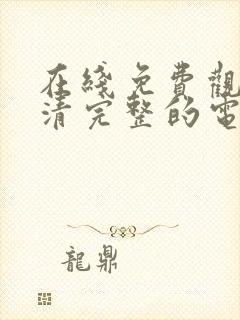 在綫免費觀
清完整的電
龍鼎